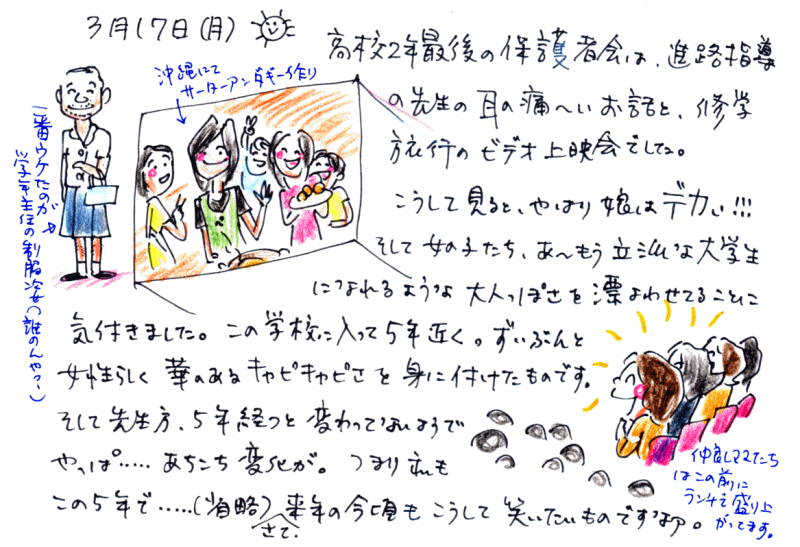 3月17日(月)
高校2年最後の保護者会は、進路指導
の先生の耳の痛〜いお話と、修学
旅行のビデオ上映会でした。
こうして見ると、やはり娘はデカい!!!
そして女の子たち、あ〜もう立派な大学生
になれるような大人っぽさを漂よわせてることに
気付きました。この学校に入って5年近く。ずいぶんと
女性らしく華のあるキャピキャピさを身に付けたものです。
そして先生方、5年経つと変わってないようで
やっぱ……あちこち変化が。つまり私も
この5年で……(省略)さて、来年の今頃もこうして笑いたいものですなア。
沖縄にて
サーターアンダギー作り
一番ウケたのが
学年主任の制服姿(誰のんや?)
仲良しママたち
はこの前に
ランチで盛り上
がってます。